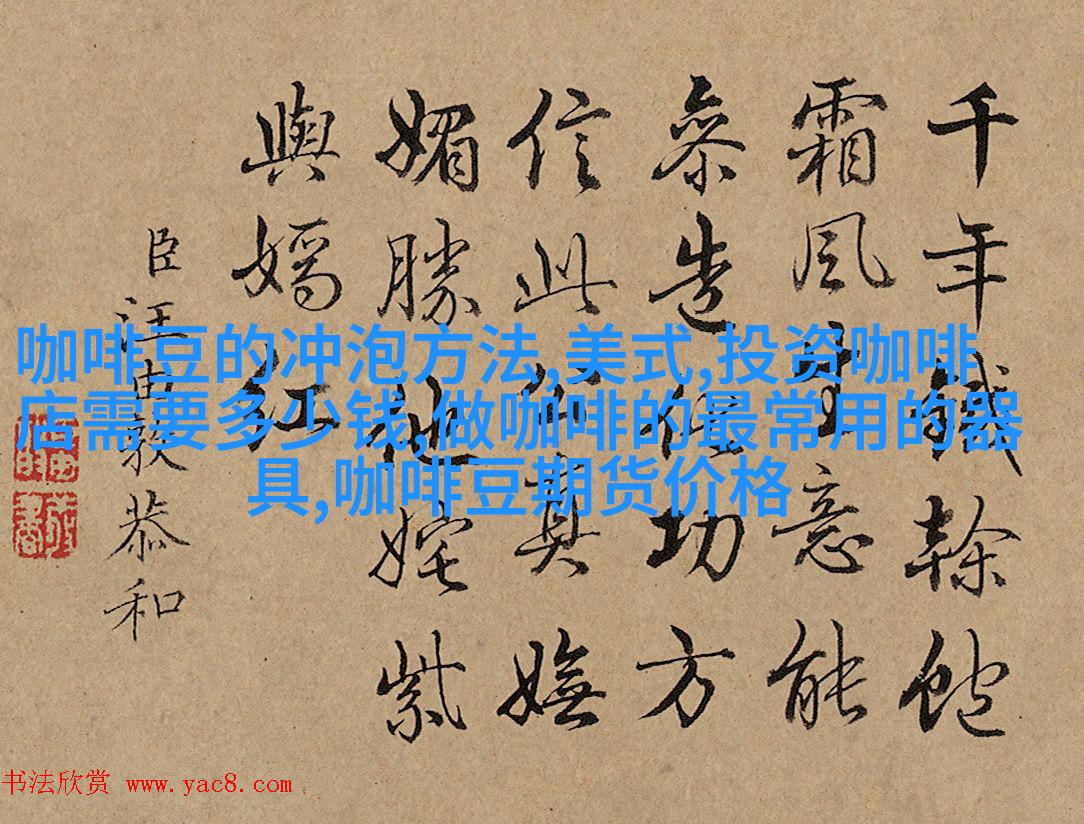 千年鐵幹飽
霜風意能
參造化功方
信此花真嫵
媚勝他姹紫
與嫣紅
臣汪由敦恭和
咖啡豆的冲泡方法,美式,投资咖啡
店需要多少钱,做咖啡的最常用的器
具,咖啡豆期货价格
书法欣赏 www.yac8.com